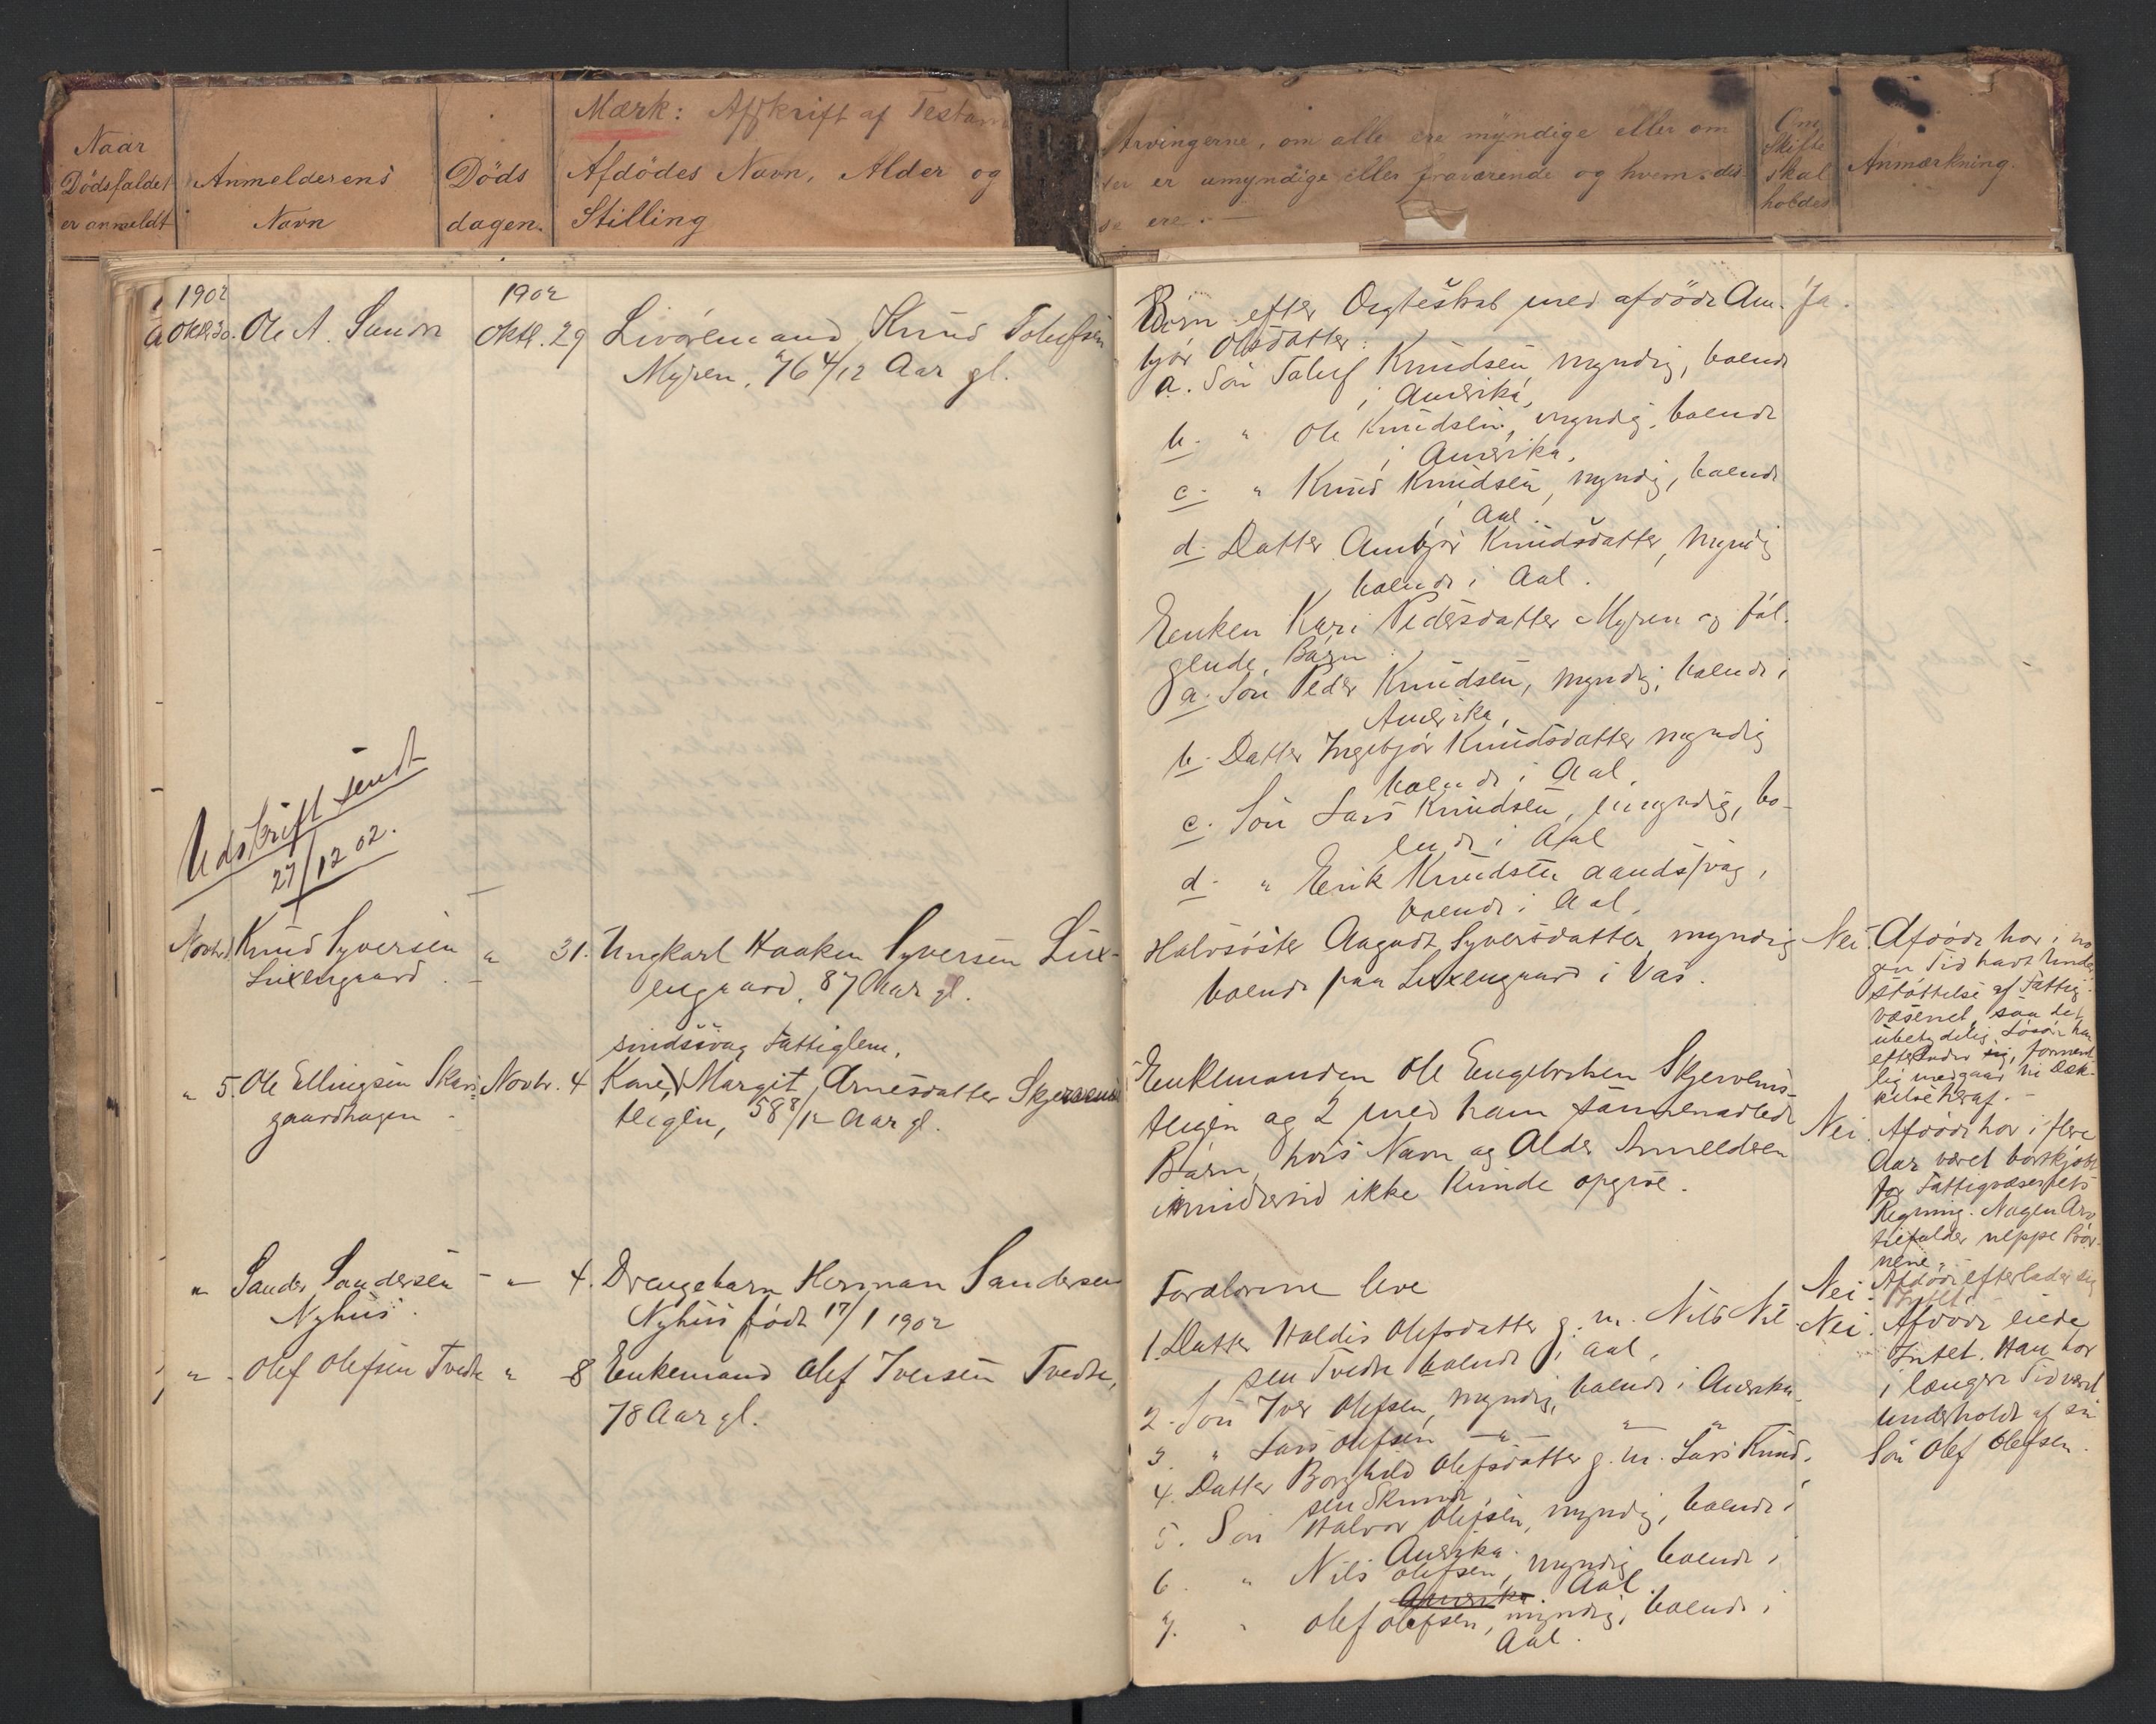 Mærk: Afskrift af Testam
Naar
Dödsfaldet
er anmeldt
Anmelderens
Navn
Döds
dagen.
Afdödes Navn, Alder og
Stilling
Arvingerne, om alle ere myndige eller om
er umyndige eller fraværende og hvem dis
se ere.
Om
Skifte
skal
holdes
Anmærkning.
1902
Oktb 30. Ole A. Sundre
1902
Oktb. 29
Livöremand Knud Tolufsen
Myren, 76 4/12 Aar gl.
Börn efter Ægteskab med afdöde Am-
björ Olsdatter:
a. Sön Toluf Knudsen, myndig, boende
i Amerika,
b. " Ole Knudsen, myndig, boende
i Amerika,
c. " Knud Knudsen, myndig, boende
i Aal.
d. Datter Ambjör Knudsdatter, myndig
boende i Aal.
Enken Kari Pedersdatter Myren og föl-
gende Börn:
a. Sön Peder Knudsen, myndig, boende i
Amerika,
b. Datter Ingebjör Knudsdatter myndig
boende i Aal,
c. Sön Lars Knudsen, umyndig, bo-
ende i Aal
d. " Erik Knudsen aandssvag,
boende i Aal.
Ja.
Udskrift sendt
27/12 02.
Novbr. 1 Knud Syversen
Luxengaard.
" 31.
Ungkarl Haaken Syversen Lux-
engaard, 87 Aar gl.
sindssvag Fattiglem.
Halvsöster Aagodt Syversdatter myndig
boende paa Luxengaard i Vas.
Nei.
Afdöde har i no
gen Tid havt Under-
stöttelse af Fattig-
væsenet, saa det
ubetydelig Lösöre han
efterlader sig, forment-
lig medgaar til Dæk-
kelse heraf.
" 5. Ole Ellingsen Skars-
gaardhagen
Novbr. 4
Kone, Margit Arnesdatter Skjervems-
teigen, 58 8/12 Aar gl.
Enkemanden Ole Engebretsen Skjervems-
teigen og 2 med ham sammenavlede
Börn, hvis Navn og Alder Anmelderen
imidlertid ikke kunde opgive.
Nei.
Afdöde har i flere
Aar været bortkjöbt
for Fattigvæsenets
Regning. Nogen Arv
tilfalder neppe Bör-
nene.
" Sander Sandersen
Nyhus.
" 4.
Drengebarn Herman Sandersen
Nyhus födt 17/1 1902
Forældrene leve
Nei.
Afdöde efterlader sig
Intet.
" Olef Olefsen Tvedte
" 8
Enkemand Olef Iversen Tvedte,
78 Aar gl.
1. Datter Haldis Olefsdatter g. m. Nils Nil-
sen Tvedte boende i Aal,
2. Sön Iver Olefsen, myndig, boende i Amerika.
3. " Lars Olefsen — " — " "
4. Datter Borghild Olefsdatter g. m. Lars Knud-
sen
5. Sön Halvor Olefsen, myndig, boende i
Amerika.
6. " Nils Olefsen, myndig boende i
Amerika. Aal.
7. " Olef Olefsen, myndig, boende i
Aal.
Nei.
Afdöde eiede
Intet. Han har
i længere Tid været
underholdt af sin
Sön Olef Olefsen.